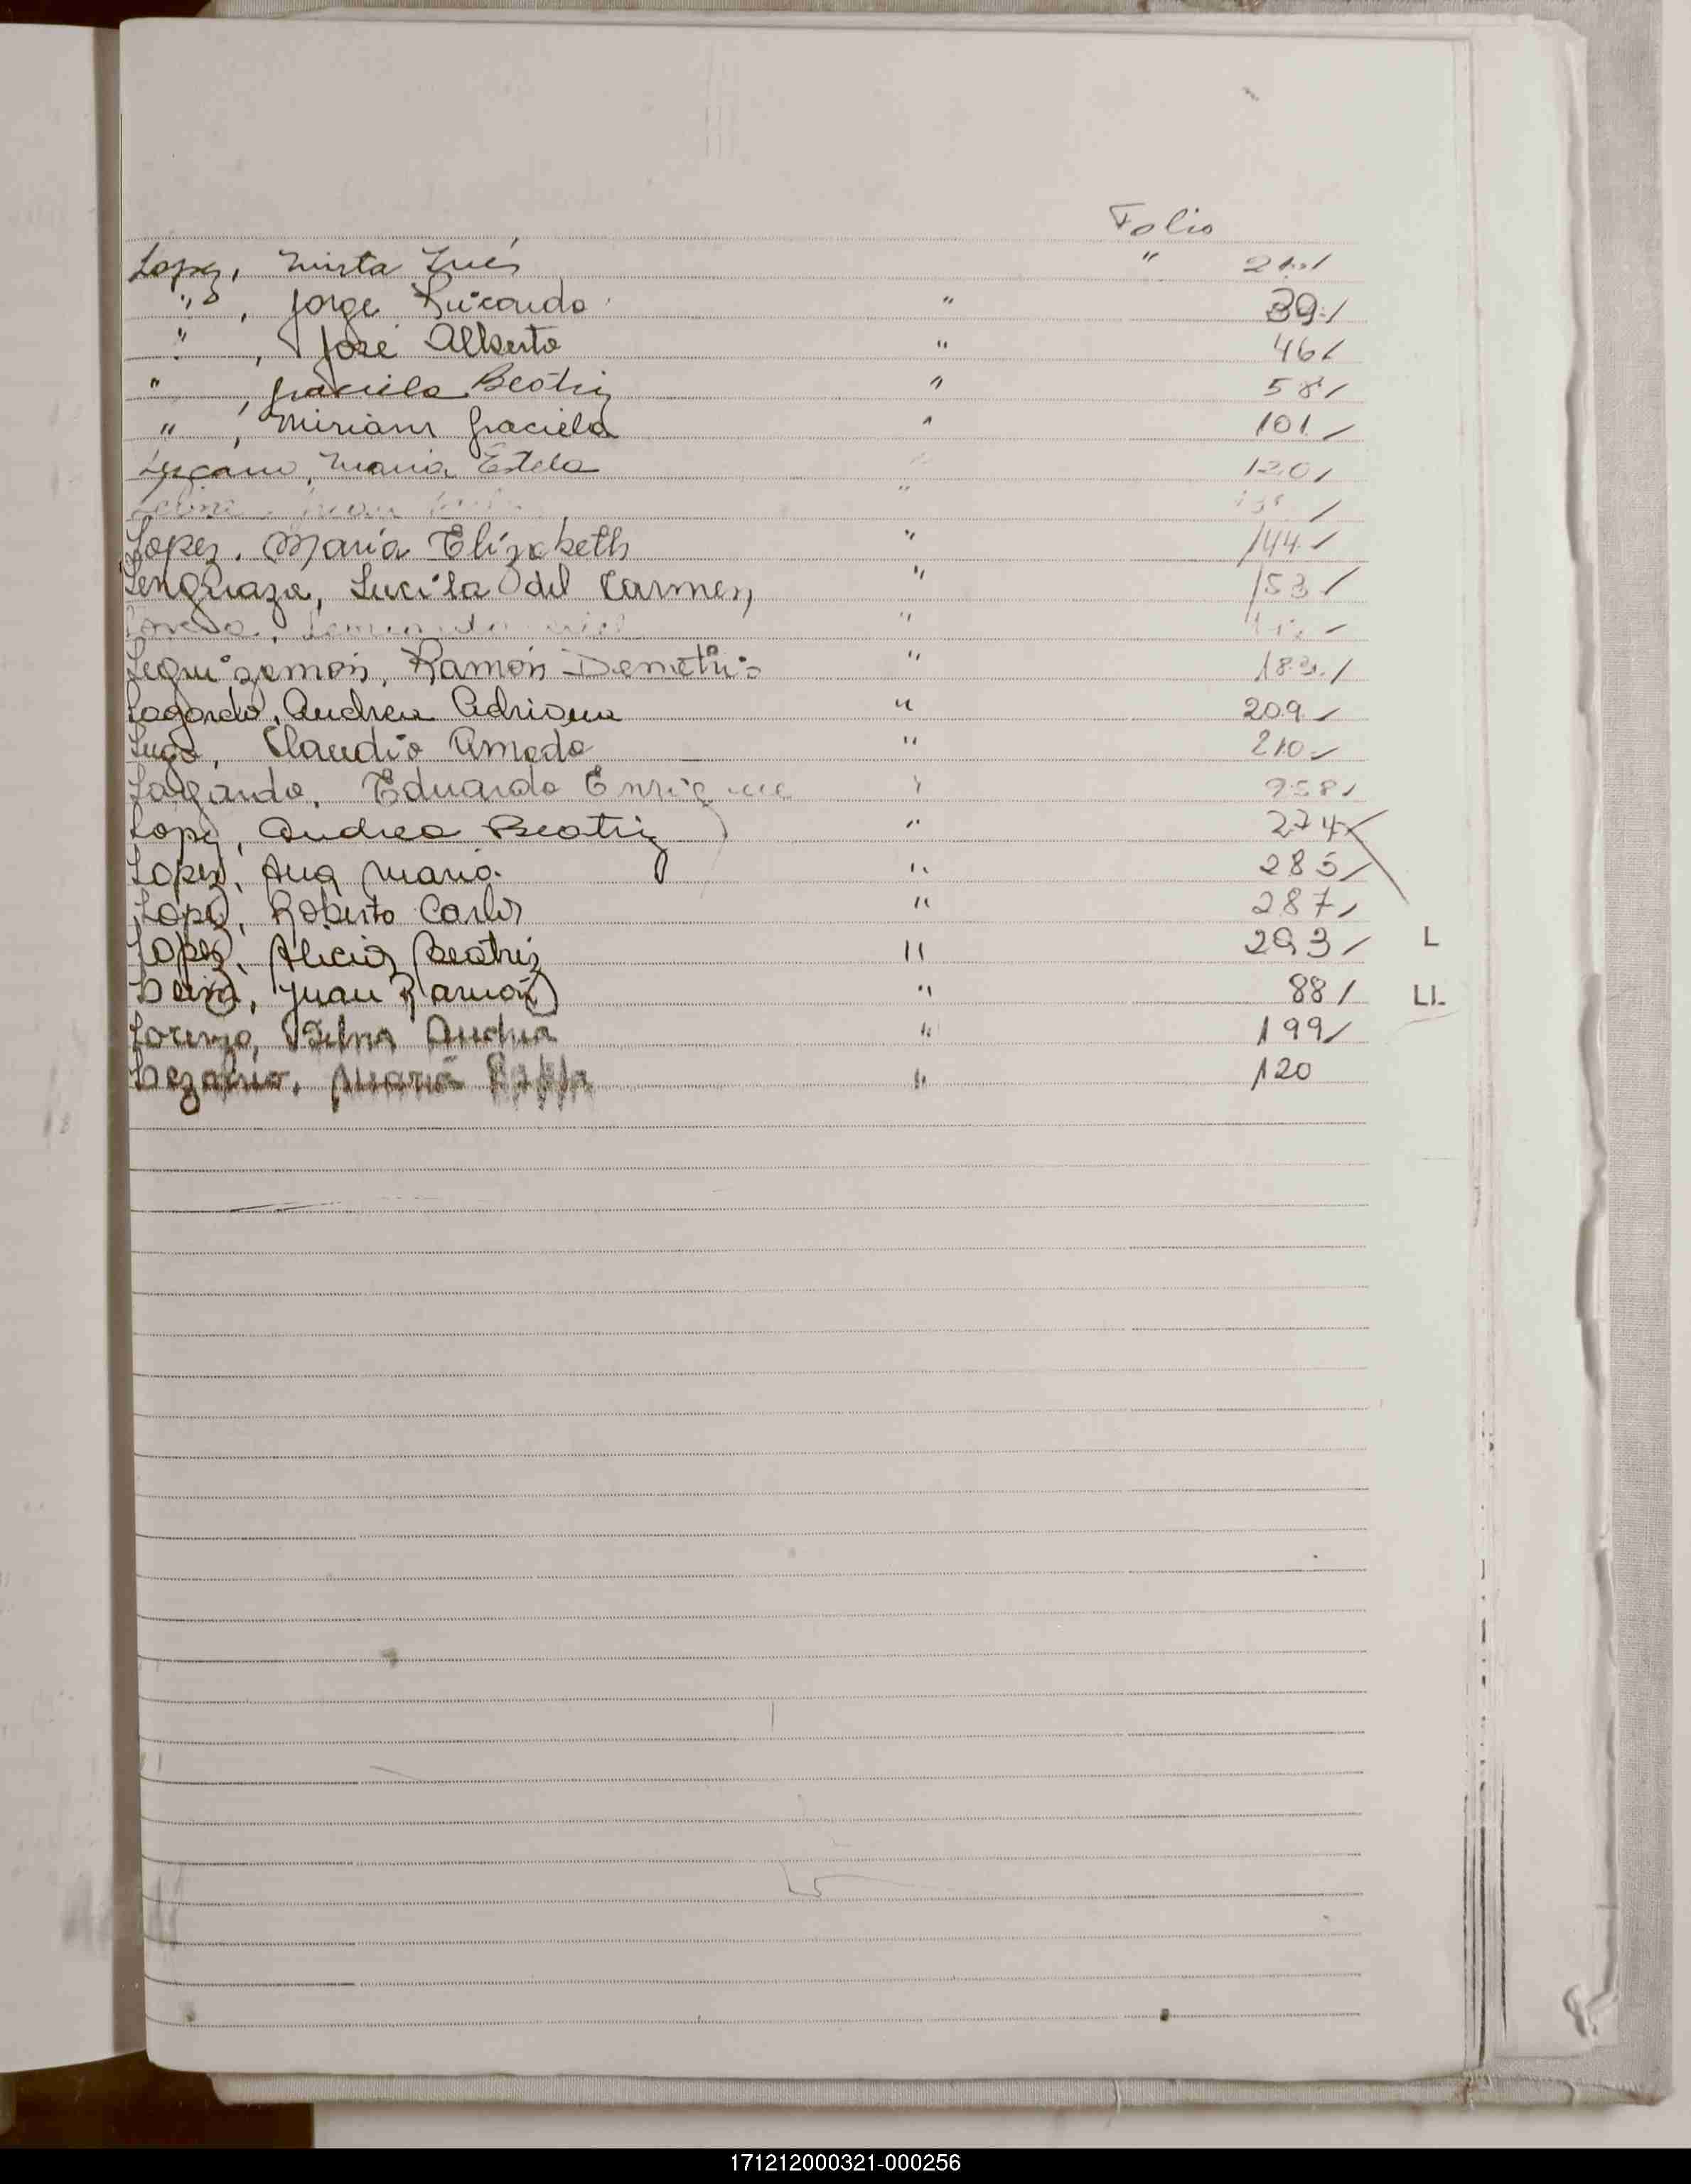 Folio
Lopez, Mirta Inés " 21
" , Jorge Ricardo " 39
" , José Alberto " 46
" , Graciela Beatriz " 58
" , Miriam Graciela " 101
Lezcano, Maria Estela " 120
Juan "
Lopez, Maria Elizabeth " 144
Lenguaza, Lucila del Carmen " 153
"
Leguizamón, Ramón Demetrio " 183
Lagardo, Andrea Adriana " 209
Lugo, Claudio Amado " 210
Lagardo, Eduardo Enrique " 258
Lopez, Andrea Beatriz " 274
Lopez, Ana Maria " 285
Lopez, Roberto Carlos " 287
Lopez, Alicia Beatriz " 293 L
Juan Ramón " 88 LL
Lorenzo, Andrea " 199
Lezcano, Maria " 120
171212000321-000256